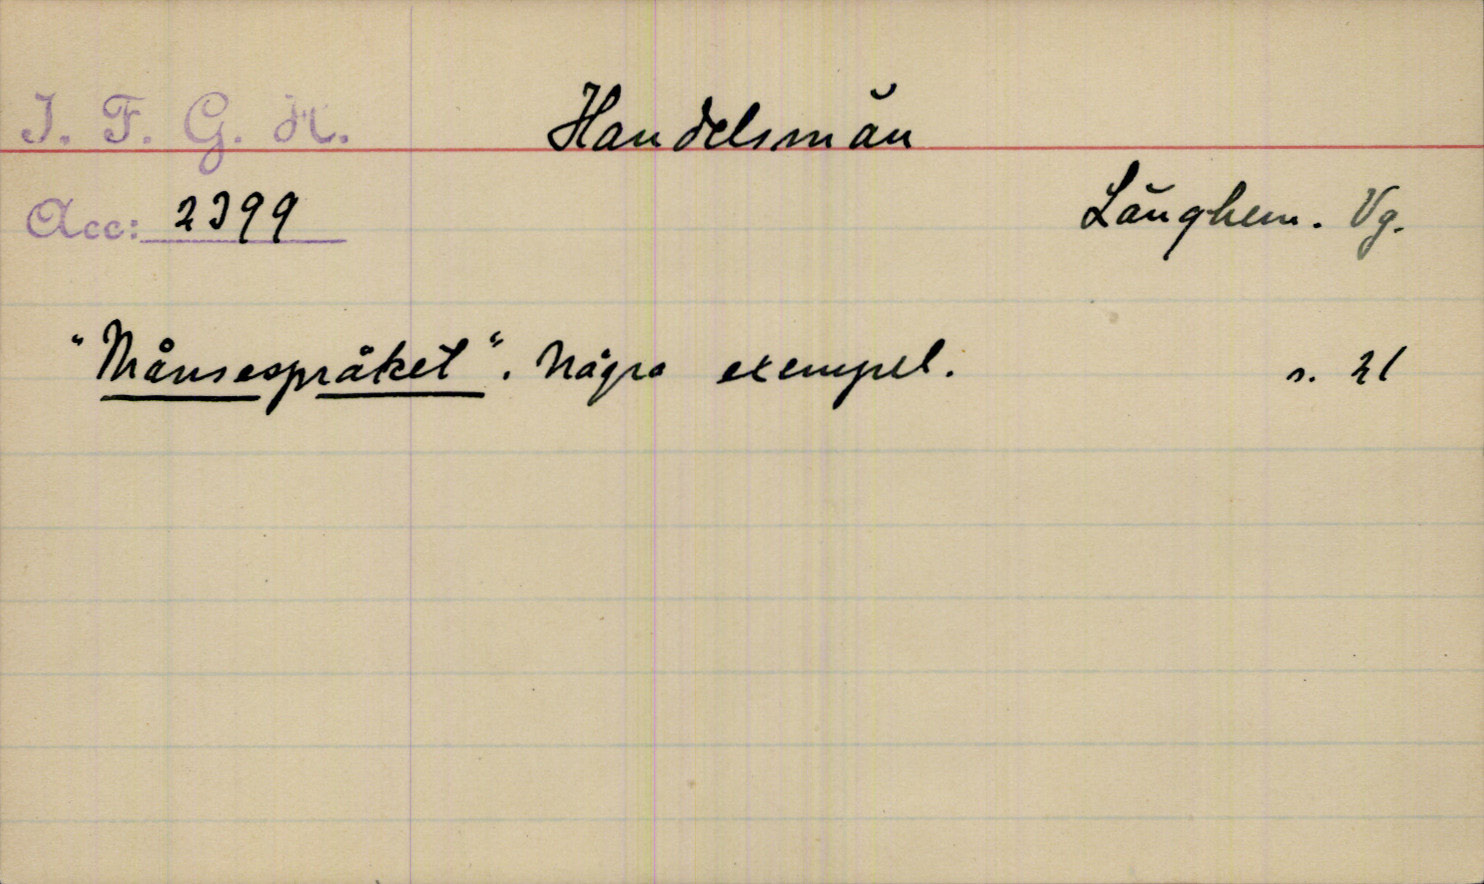 I. F. G. H.
Handelsmän
Acc: 2399
Länghem. Vg.
"Månsespråket". Några exempel. s. 21